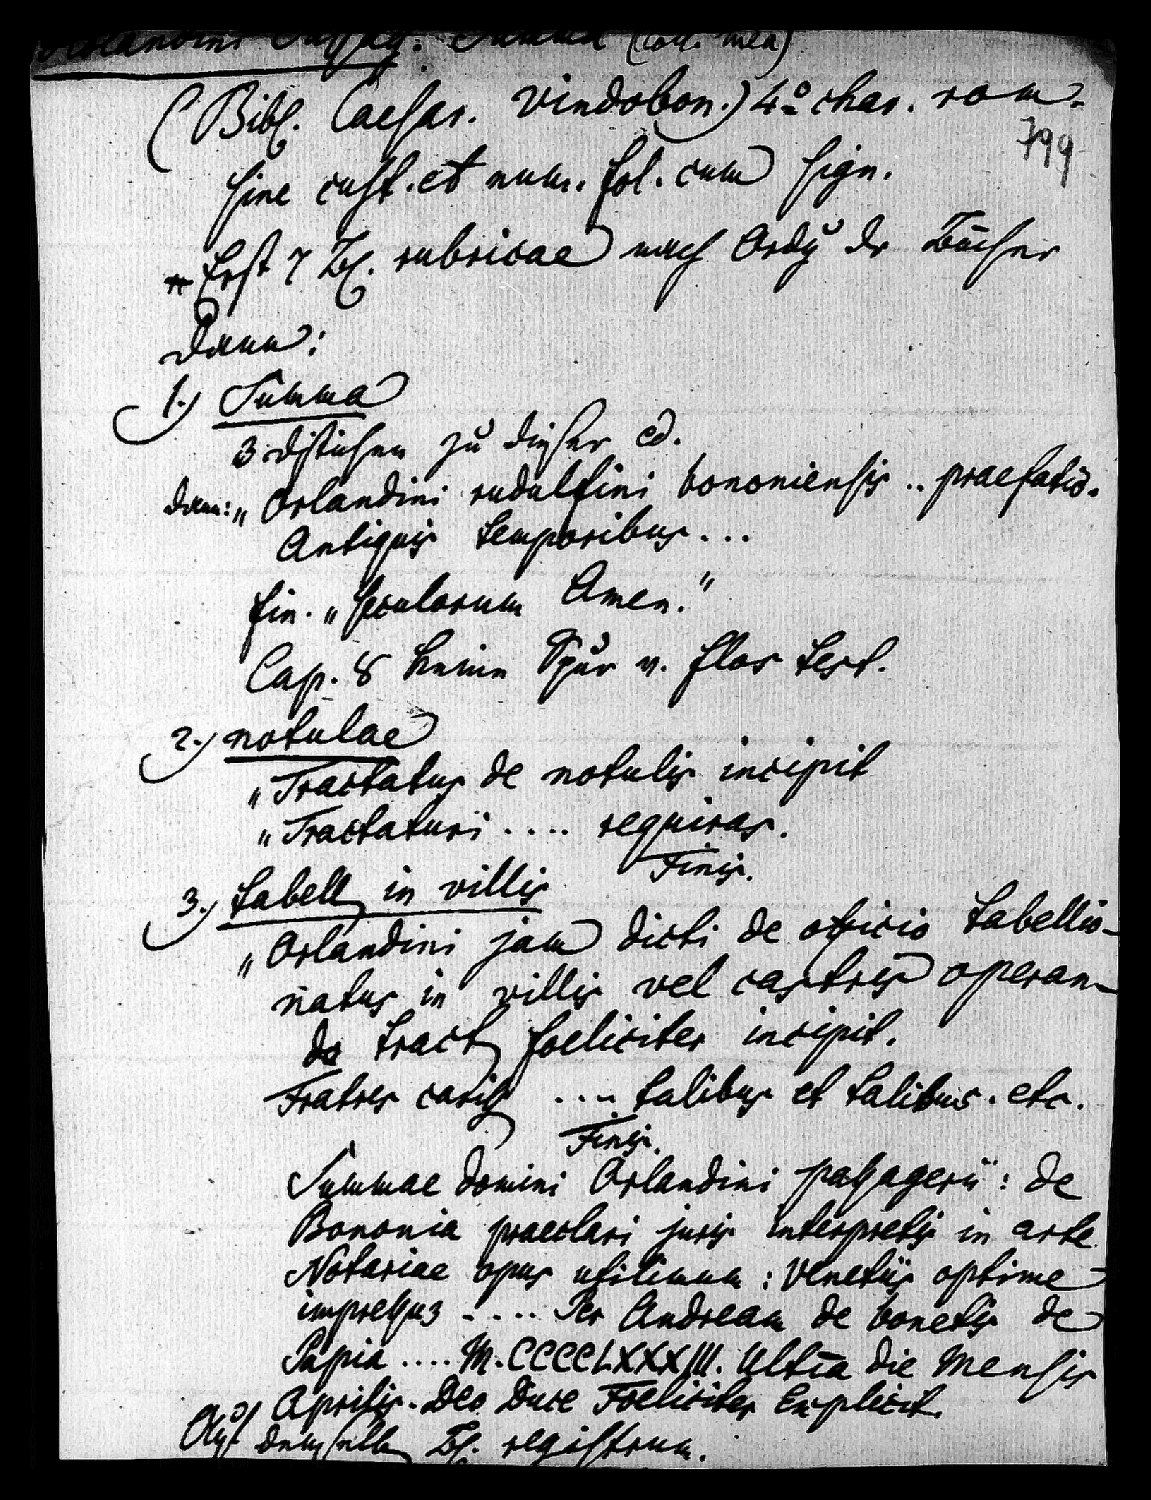 Orlandini Passag. Summa (coll. mea)
(Bibl. Caesar. Vindobon.) 4º char. rom.
799
sine cust. et num. fol. cum sign.
Erst 7 Bl. rubricae nach Ordg der Bücher
Dann:
1.) Summa
3 distichen zu dieser ed.
dann: „Orlandini rudulfini bononiensis .. praefatio.
Antiquis temporibus ...
fin. „seculorum Amen."
Cap. 8 keine Spur v. flos test.
2.) notulae
„Tractatus de notulis incipit
„Tractaturi .... requiras.
Finis.
3.) tabell in villis
„Orlandini jam dicti de officio tabellio-
natus in villis vel castris operan-
do tract foeliciter incipit.
Fratres caris .... talibus et talibus. etc.
Finis.
Summae domini Orlandini passagerii: de
Bononia praeclari juris interpretis in arte
Notariae opus utilimum: Venetiis optime
impressus .... Per Andream de bonetis de
Papia .... M.CCCCLXXXIII. Ultia die Mensis
Aprilis. Deo Duce Foeliciter Explicit.
Auf demselben Bl. registrum.